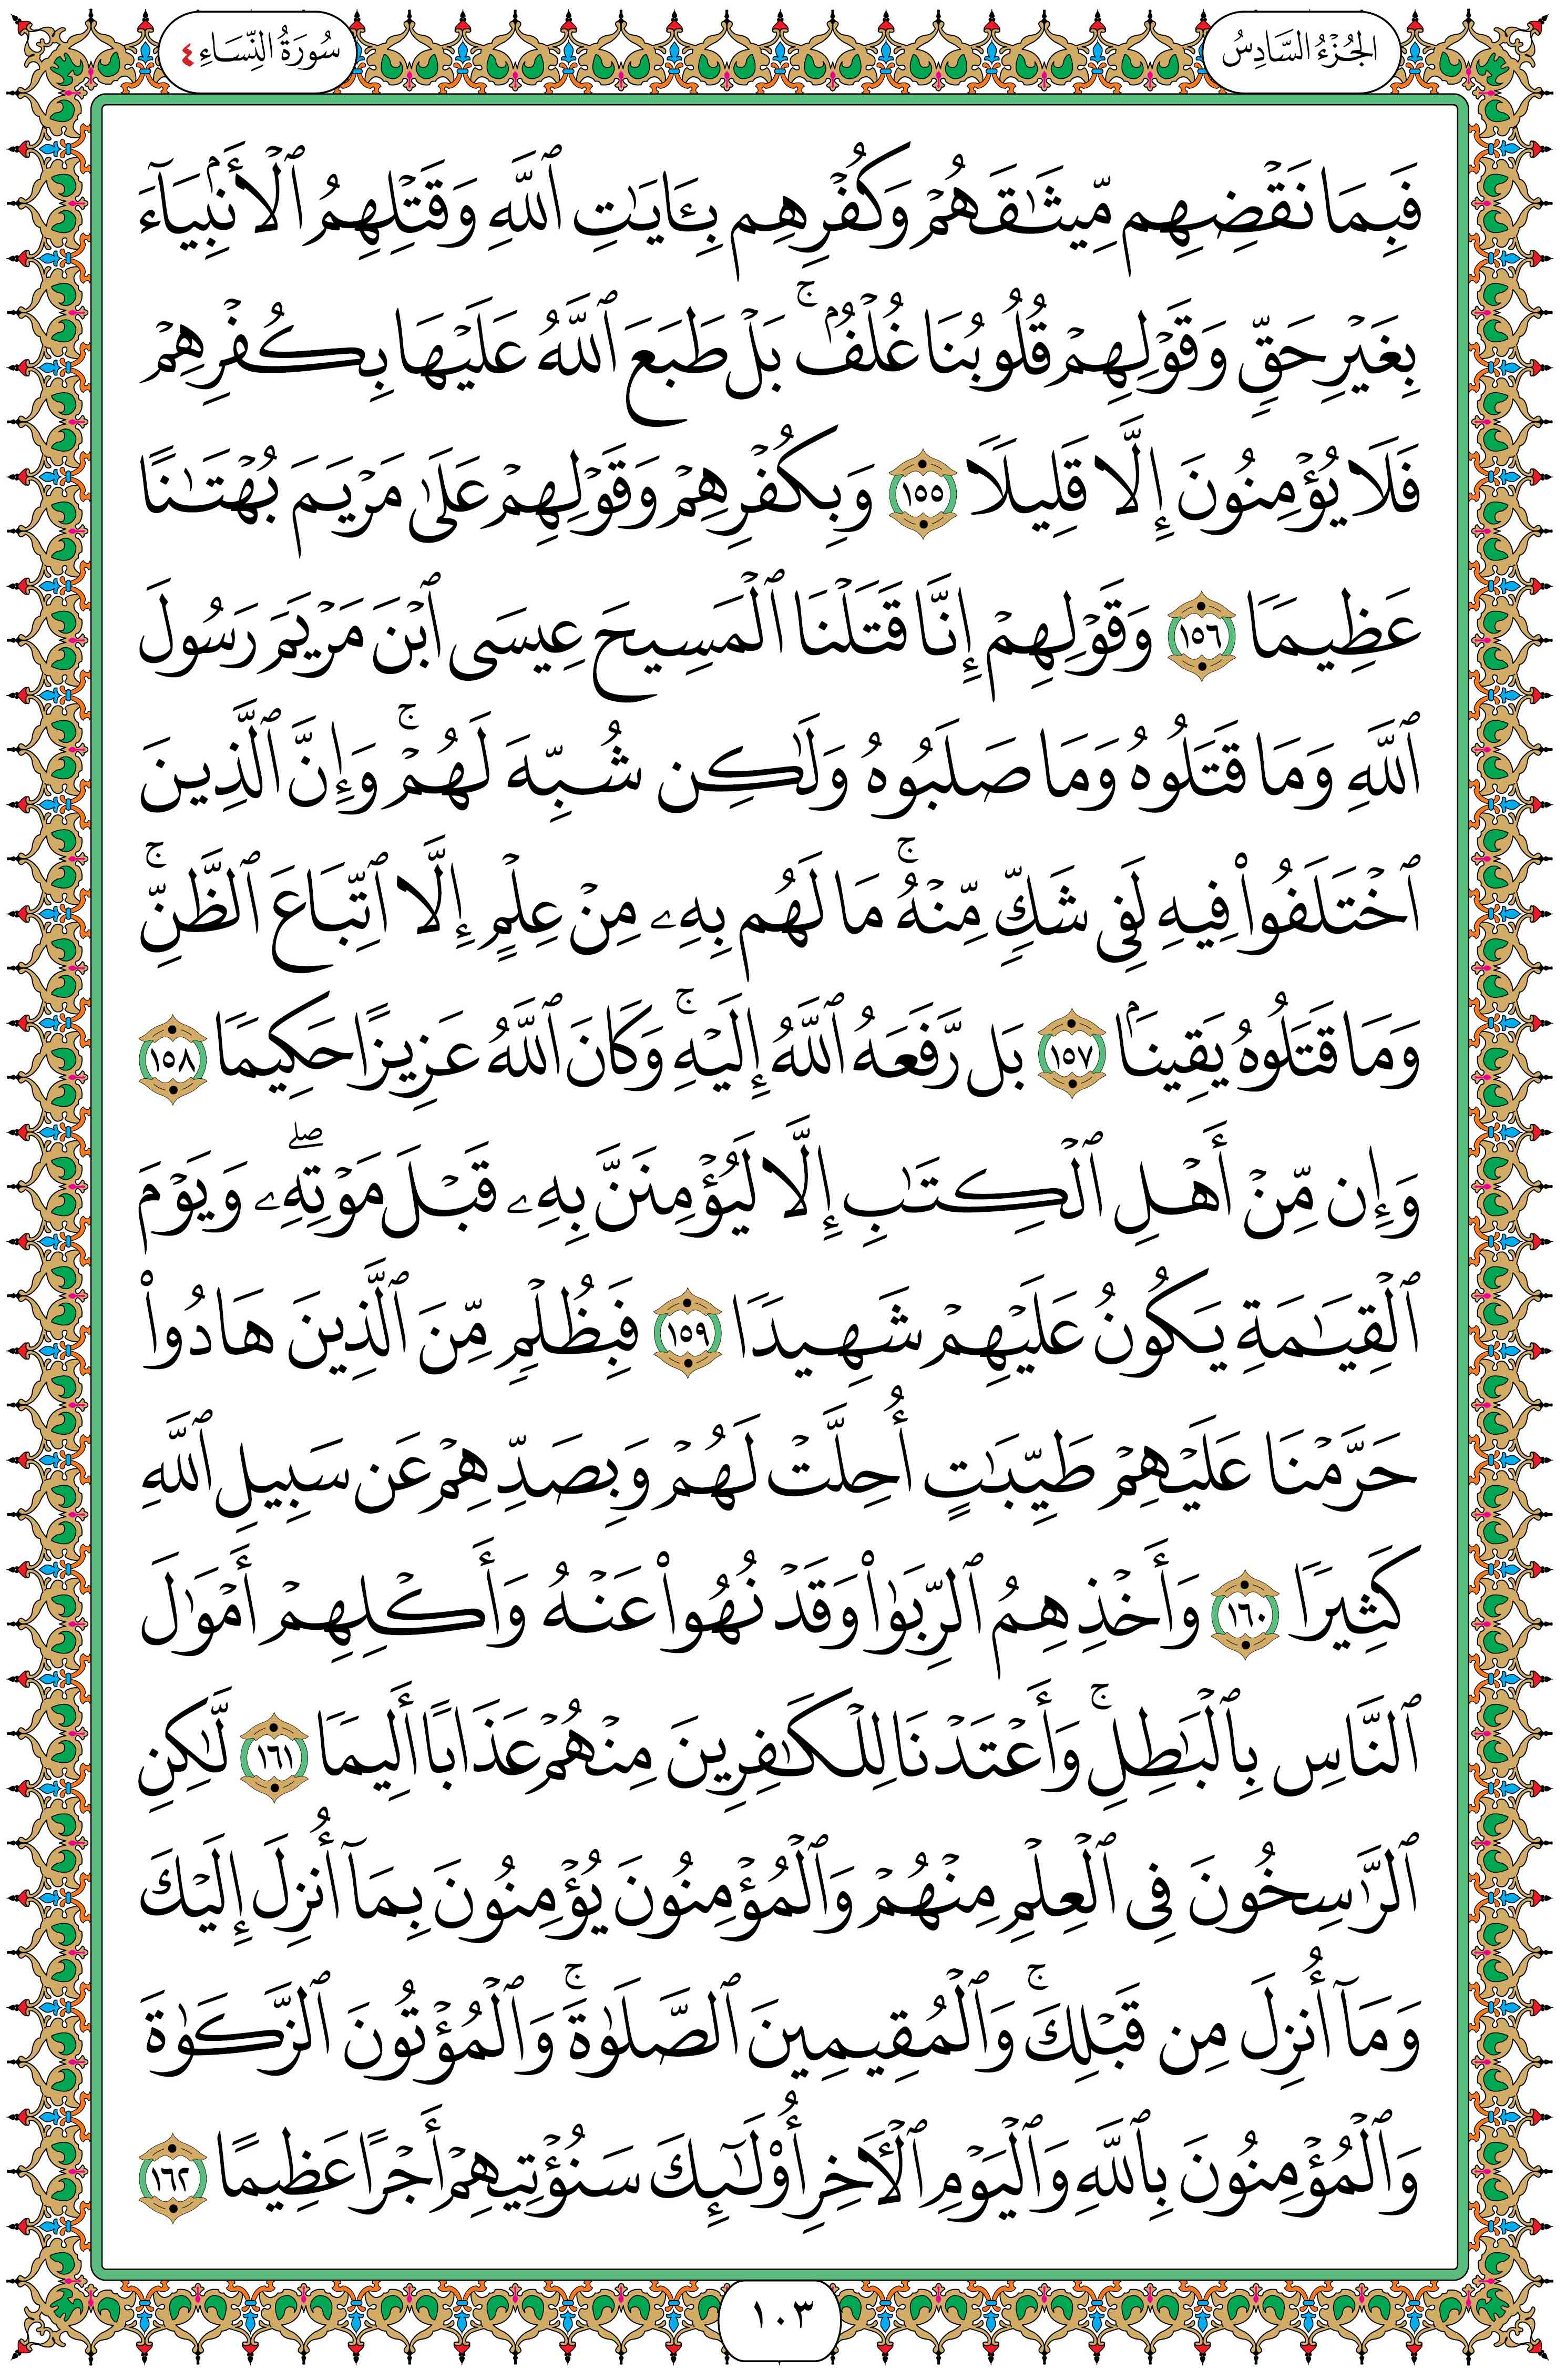 الجُزْءُ السَّادِسُ
سُورَةُ النِّسَاءِ ٤
فَبِمَا نَقْضِهِم مِّيثَٰقَهُمْ وَكُفْرِهِم بِـَٔايَٰتِ ٱللَّهِ وَقَتْلِهِمُ ٱلْأَنۢبِيَآءَ
بِغَيْرِ حَقٍّ وَقَوْلِهِمْ قُلُوبُنَا غُلْفٌۢ ۚ بَلْ طَبَعَ ٱللَّهُ عَلَيْهَا بِكُفْرِهِمْ
فَلَا يُؤْمِنُونَ إِلَّا قَلِيلًا ١٥٥ وَبِكُفْرِهِمْ وَقَوْلِهِمْ عَلَىٰ مَرْيَمَ بُهْتَٰنًا
عَظِيمًا ١٥٦ وَقَوْلِهِمْ إِنَّا قَتَلْنَا ٱلْمَسِيحَ عِيسَى ٱبْنَ مَرْيَمَ رَسُولَ
ٱللَّهِ وَمَا قَتَلُوهُ وَمَا صَلَبُوهُ وَلَٰكِن شُبِّهَ لَهُمْ ۚ وَإِنَّ ٱلَّذِينَ
ٱخْتَلَفُوا۟ فِيهِ لَفِى شَكٍّ مِّنْهُ ۚ مَا لَهُم بِهِۦ مِنْ عِلْمٍ إِلَّا ٱتِّبَاعَ ٱلظَّنِّ ۚ
وَمَا قَتَلُوهُ يَقِينًۢا ١٥٧ بَل رَّفَعَهُ ٱللَّهُ إِلَيْهِ ۚ وَكَانَ ٱللَّهُ عَزِيزًا حَكِيمًا ١٥٨
وَإِن مِّنْ أَهْلِ ٱلْكِتَٰبِ إِلَّا لَيُؤْمِنَنَّ بِهِۦ قَبْلَ مَوْتِهِۦ ۖ وَيَوْمَ
ٱلْقِيَٰمَةِ يَكُونُ عَلَيْهِمْ شَهِيدًا ١٥٩ فَبِظُلْمٍ مِّنَ ٱلَّذِينَ هَادُوا۟
حَرَّمْنَا عَلَيْهِمْ طَيِّبَٰتٍ أُحِلَّتْ لَهُمْ وَبِصَدِّهِمْ عَن سَبِيلِ ٱللَّهِ
كَثِيرًا ١٦٠ وَأَخْذِهِمُ ٱلرِّبَوٰا۟ وَقَدْ نُهُوا۟ عَنْهُ وَأَكْلِهِمْ أَمْوَٰلَ
ٱلنَّاسِ بِٱلْبَٰطِلِ ۚ وَأَعْتَدْنَا لِلْكَٰفِرِينَ مِنْهُمْ عَذَابًا أَلِيمًا ١٦١ لَّٰكِنِ
ٱلرَّٰسِخُونَ فِى ٱلْعِلْمِ مِنْهُمْ وَٱلْمُؤْمِنُونَ يُؤْمِنُونَ بِمَآ أُنزِلَ إِلَيْكَ
وَمَآ أُنزِلَ مِن قَبْلِكَ ۚ وَٱلْمُقِيمِينَ ٱلصَّلَوٰةَ ۚ وَٱلْمُؤْتُونَ ٱلزَّكَوٰةَ
وَٱلْمُؤْمِنُونَ بِٱللَّهِ وَٱلْيَوْمِ ٱلْـَٔاخِرِ أُو۟لَٰٓئِكَ سَنُؤْتِيهِمْ أَجْرًا عَظِيمًا ١٦٢
١٠٣